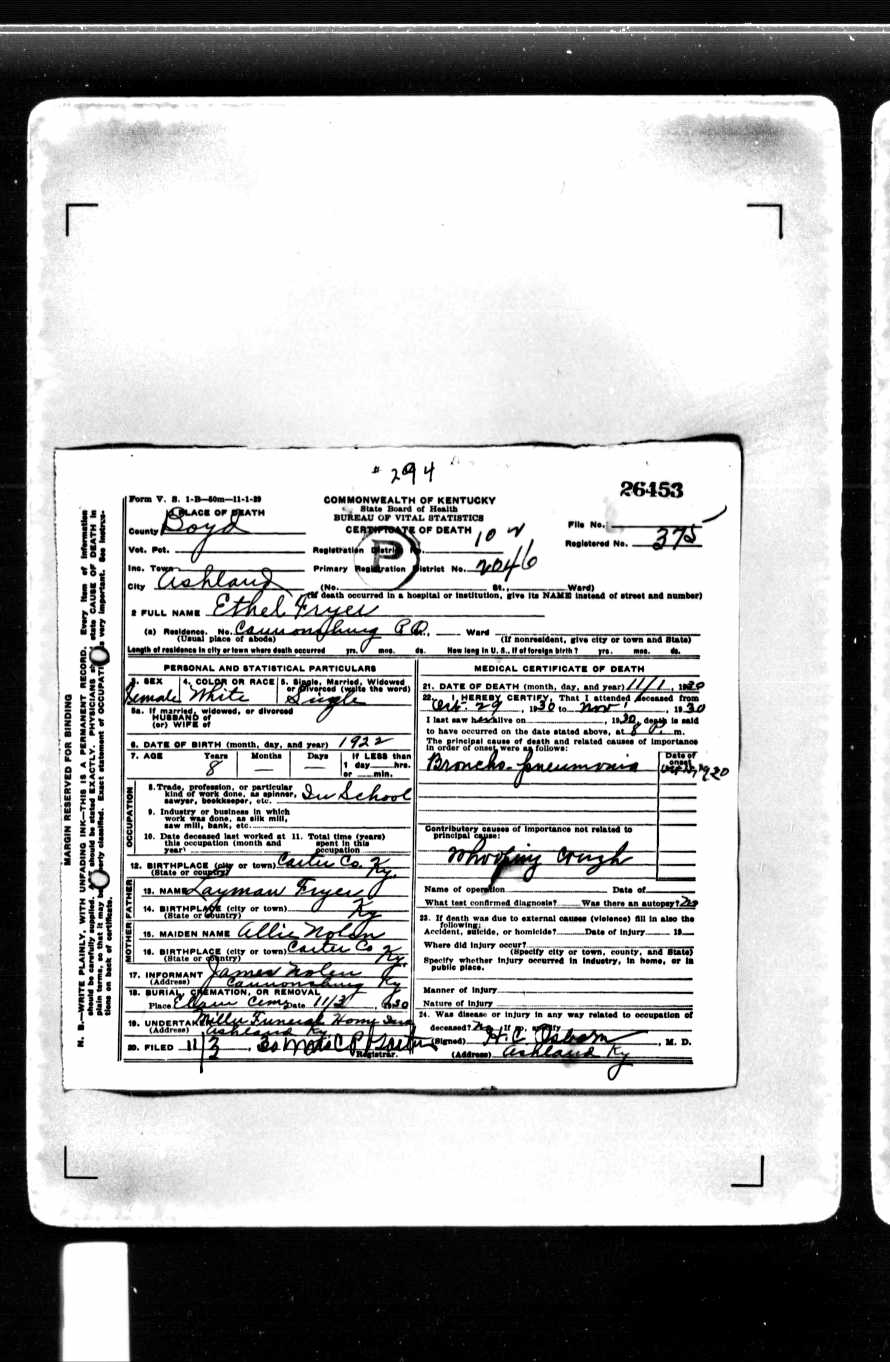 # 294
26453
Form V. S. 1-B—50m—11-1-29
COMMONWEALTH OF KENTUCKY
State Board of Health
BUREAU OF VITAL STATISTICS
CERTIFICATE OF DEATH
PLACE OF DEATH
County Boyd
File No.
Registered No. 375
Vot. Pct.
Registration District No. 10
Inc. Town
Primary Registration District No. 2046
City Ashland (No. St., Ward)
(If death occurred in a hospital or institution, give its NAME instead of street and number)
2 FULL NAME Ethel Fryer
(a) Residence. No. Cannonsburg Ward
(Usual place of abode) (If nonresident, give city or town and State)
Length of residence in city or town where death occurred yrs. mos. ds. How long in U. S., if of foreign birth? yrs. mos. ds.
PERSONAL AND STATISTICAL PARTICULARS
3. SEX Female
4. COLOR OR RACE White
5. Single, Married, Widowed
or Divorced (write the word)
Single
5a. If married, widowed, or divorced
HUSBAND of
(or) WIFE of
6. DATE OF BIRTH (month, day, and year) 1922
7. AGE Years 8 Months — Days — If LESS than
1 day hrs.
or min.
OCCUPATION
8. Trade, profession, or particular
kind of work done, as spinner,
sawyer, bookkeeper, etc. In School
9. Industry or business in which
work was done, as silk mill,
saw mill, bank, etc.
10. Date deceased last worked at
this occupation (month and
year)
11. Total time (years)
spent in this
occupation
12. BIRTHPLACE (city or town) Carter Co.
(State or country) Ky.
FATHER
13. NAME Layman Fryer
14. BIRTHPLACE (city or town)
(State or country) Ky
MOTHER
15. MAIDEN NAME Allie Nolen
16. BIRTHPLACE (city or town) Carter Co
(State or country) Ky.
17. INFORMANT James Nolen
(Address) Cannonsburg Ky
18. BURIAL, CREMATION, OR REMOVAL
Place Cem Date 11/3, 1930
19. UNDERTAKER Miller Funeral Home
(Address) Ashland Ky
20. FILED 11/3 30
Registrar.
MEDICAL CERTIFICATE OF DEATH
21. DATE OF DEATH (month, day, and year) 11/1, 1930
22. I HEREBY CERTIFY, That I attended deceased from
Oct. 29, 1930 to Nov 1, 1930
I last saw her alive on , 1930, death is said
to have occurred on the date stated above, at 8 P. m.
The principal cause of death and related causes of importance
in order of onset were as follows:
Date of
onset
Broncho-pneumonia
Contributory causes of importance not related to
principal cause:
Whooping cough
Name of operation Date of
What test confirmed diagnosis? Was there an autopsy? No
23. If death was due to external causes (violence) fill in also the
following:
Accident, suicide, or homicide? Date of injury 19
Where did injury occur?
(Specify city or town, county, and State)
Specify whether injury occurred in industry, in home, or in
public place.
Manner of injury
Nature of injury
24. Was disease or injury in any way related to occupation of
deceased? No If so, specify
(Signed) H. C. Osborn, M. D.
(Address) Ashland Ky
MARGIN RESERVED FOR BINDING
N. B.—WRITE PLAINLY, WITH UNFADING INK—THIS IS A PERMANENT RECORD. Every item of information
should be carefully supplied. should be stated EXACTLY. PHYSICIANS state CAUSE OF DEATH in
plain terms, so that it may be classified. Exact statement of OCCUPATION very important. See instruc-
tions on back of certificate.